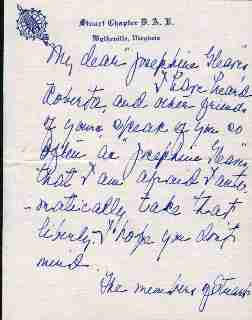 Stuart Chapter D. A. R.
Wytheville, Virginia
My dear "Josephine
I have heard
Roberta, and other friends
of yours speak of you so
often as "Josephine
that I am afraid I auto-
matically take that
liberty - I hope you don't
mind.
The members of Stuart